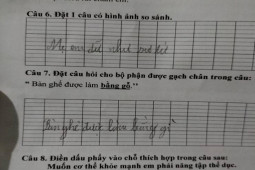 Câu 6. Đặt 1 câu có hình ảnh so sánh.
Mẹ em
Câu 7. Đặt câu hỏi cho bộ phận được gạch chân trong câu:
" Bàn ghế được làm bằng gỗ."
Bàn ghế được làm bằng gì
Câu 8. Điền dấu phẩy vào chỗ thích hợp trong câu sau:
Muốn cơ thể khỏe mạnh em phải năng tập thể dục.